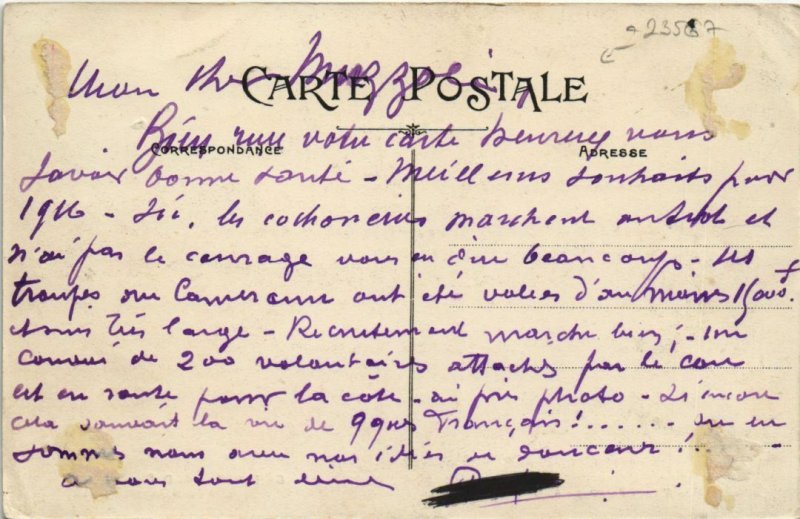 23587
Mon cher
CARTE POSTALE
Bien reçu votre carte heureux vous
CORRESPONDANCE ADRESSE
savoir bonne santé - Meilleurs souhaits pour
1916 - Ici, les cochonneries marchent surtout et
n'ai pas le courage vous en dire beaucoup - les
troupes au Cameroun ont été volées d'au moins 15000 f.
et suis très large - Recrutement marche bien ; - un
convoi de 200 volontaires attachés par le cou
est en route pour la côte - ai pris photo - Si encore
cela sauvait la vie de qques Français ! ...... où en
sommes nous avec nos idées de douceur ! ..
à vous tout